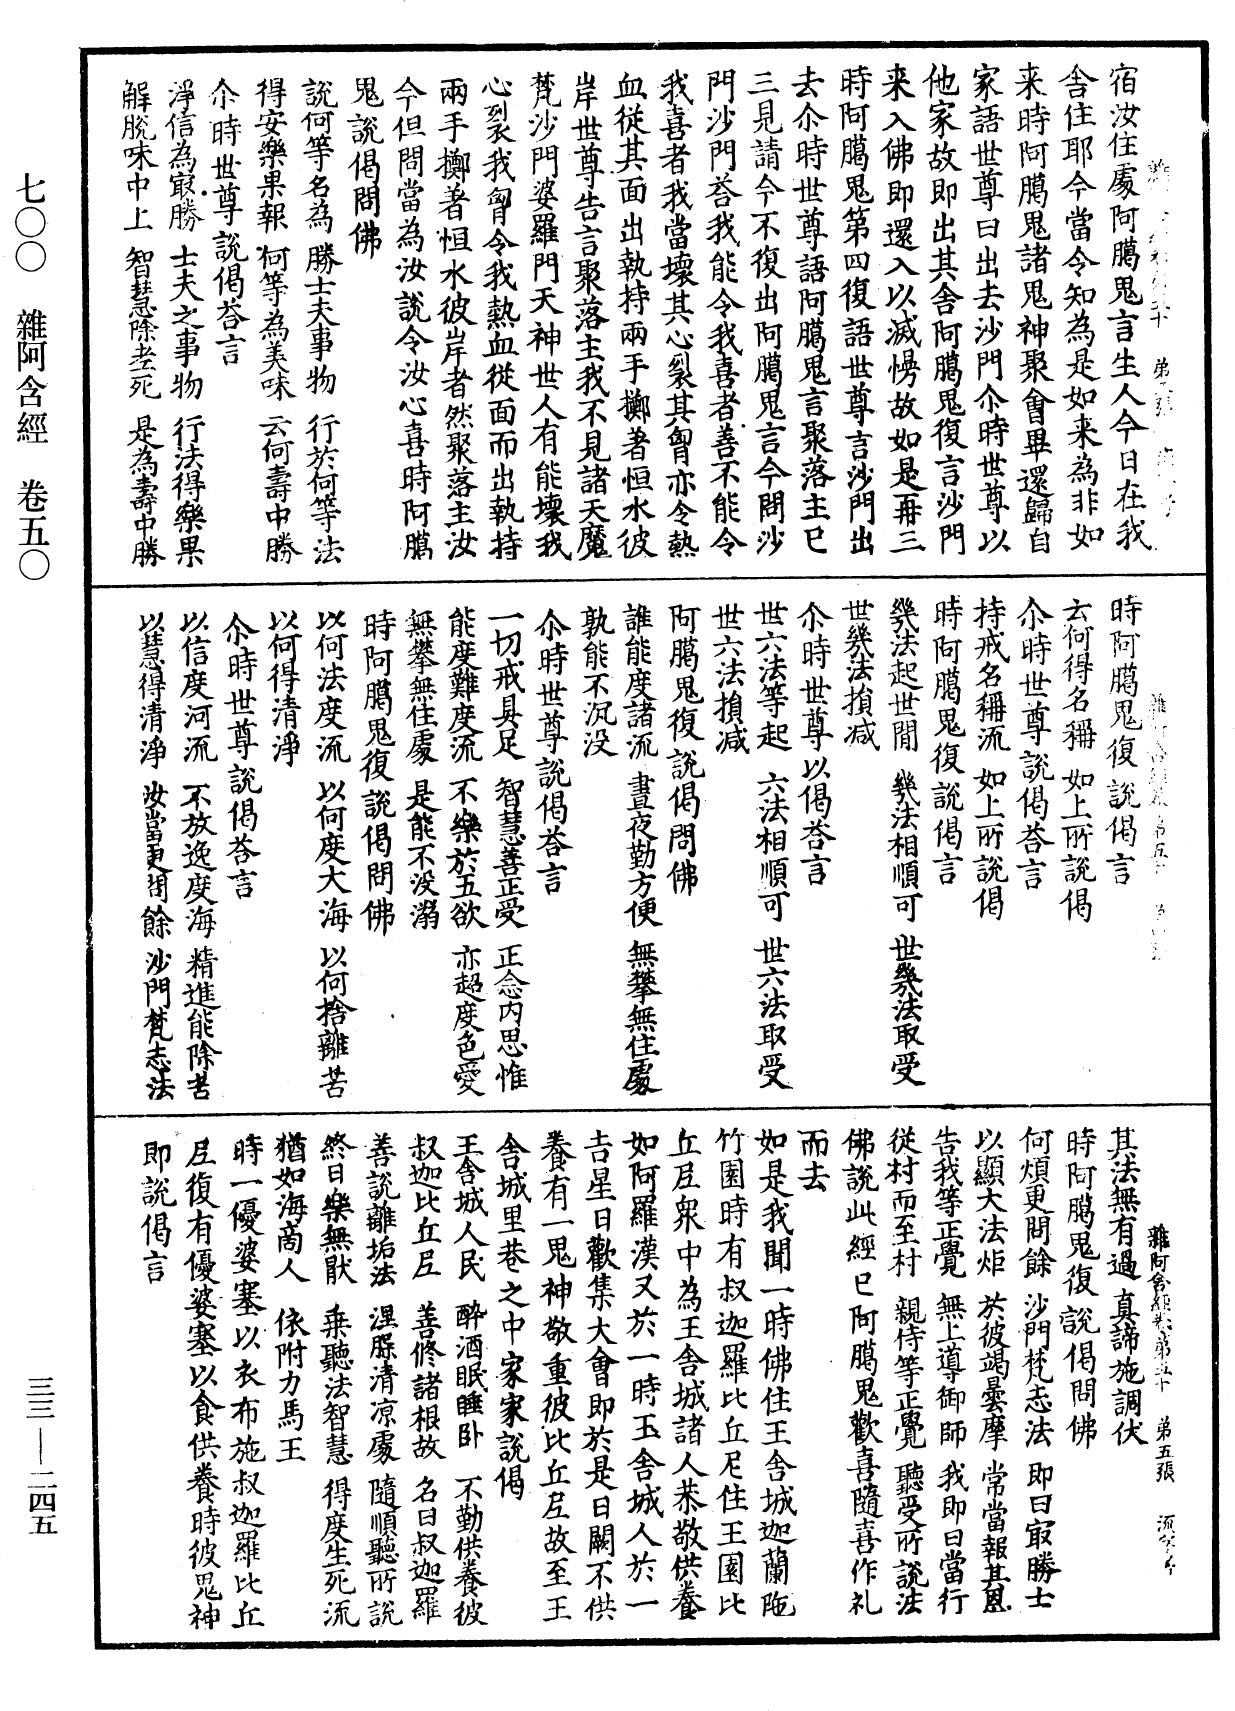 七〇〇　雜阿含經　卷五〇
宿汝住處阿臈鬼言生人今日在我
舍住耶今當令知為是如来為非如
来時阿臈鬼諸鬼神聚會畢還歸自
家語世尊曰出去沙門尒時世尊以
他家故即出其舍阿臈鬼復言沙門
来入佛即還入以滅慢故如是再三
時阿臈鬼第四復語世尊言沙門出
去尒時世尊語阿臈鬼言聚落主已
三見請今不復出阿臈鬼言今問沙
門沙門荅我能令我喜者善不能令
我喜者我當壞其心裂其胷亦令熱
血從其面出執持兩手擲著恒水彼
岸世尊告言聚落主我不見諸天魔
梵沙門婆羅門天神世人有能壞我
心裂我胷令我熱血從面而出執持
兩手擲著恒水彼岸者然聚落主汝
今但問當為汝說令汝心喜時阿臈
鬼說偈問佛
說何等名為　勝士夫事物　行於何等法
得安樂果報　何等為美味　云何壽中勝
尒時世尊說偈荅言
淨信為㝡勝　士夫之事物　行法得樂果
解脫味中上　智慧除老死　是為壽中勝
時阿臈鬼復說偈言
云何得名稱　如上所說偈
尒時世尊說偈荅言
持戒名稱流　如上所說偈
時阿臈鬼復說偈言
幾法起世間　幾法相順可　世幾法取受
世幾法損减
尒時世尊以偈荅言
世六法等起　六法相順可　世六法取受
世六法損减
阿臈鬼復說偈問佛
誰能度諸流　晝夜勤方便　無攀無住處
孰能不沉没
尒時世尊說偈荅言
一切戒具足　智慧善正受　正念内思惟
能度難度流　不樂於五欲　亦超度色愛
無攀無住處　是能不没溺
時阿臈鬼復說偈問佛
以何法度流　以何度大海　以何捨離苦
以何得清淨
尒時世尊說偈荅言
以信度河流　不放逸度海　精進能除苦
以慧得清淨　汝當更問餘　沙門梵志法
雜阿含經卷第五十　第五張
其法無有過　真諦施調伏
時阿臈鬼復說偈問佛
何煩更問餘　沙門梵志法　即曰㝡勝士
以顯大法炬　於彼竭曇摩　常當報其恩
告我等正覺　無上導御師　我即日當行
從村而至村　親侍等正覺　聽受所說法
佛說此經已阿臈鬼歡喜隨喜作礼
而去
如是我聞一時佛住王舍城迦蘭陁
竹園時有叔迦羅比丘尼住王園比
丘尼衆中為王舍城諸人恭敬供養
如阿羅漢又於一時王舍城人於一
吉星日歡集大會即於是日闕不供
養有一鬼神敬重彼比丘尼故至王
舍城里巷之中家家說偈
王舍城人民　醉酒眠睡卧　不勤供養彼
叔迦比丘尼　善修諸根故　名曰叔迦羅
善說離垢法　涅槃清凉處　隨順聽所說
終日樂無猒　乘聽法智慧　得度生死流
猶如海商人　依附力馬王
時一優婆塞以衣布施叔迦羅比丘
尼復有優婆塞以食供養時彼鬼神
即說偈言
三三—二四五